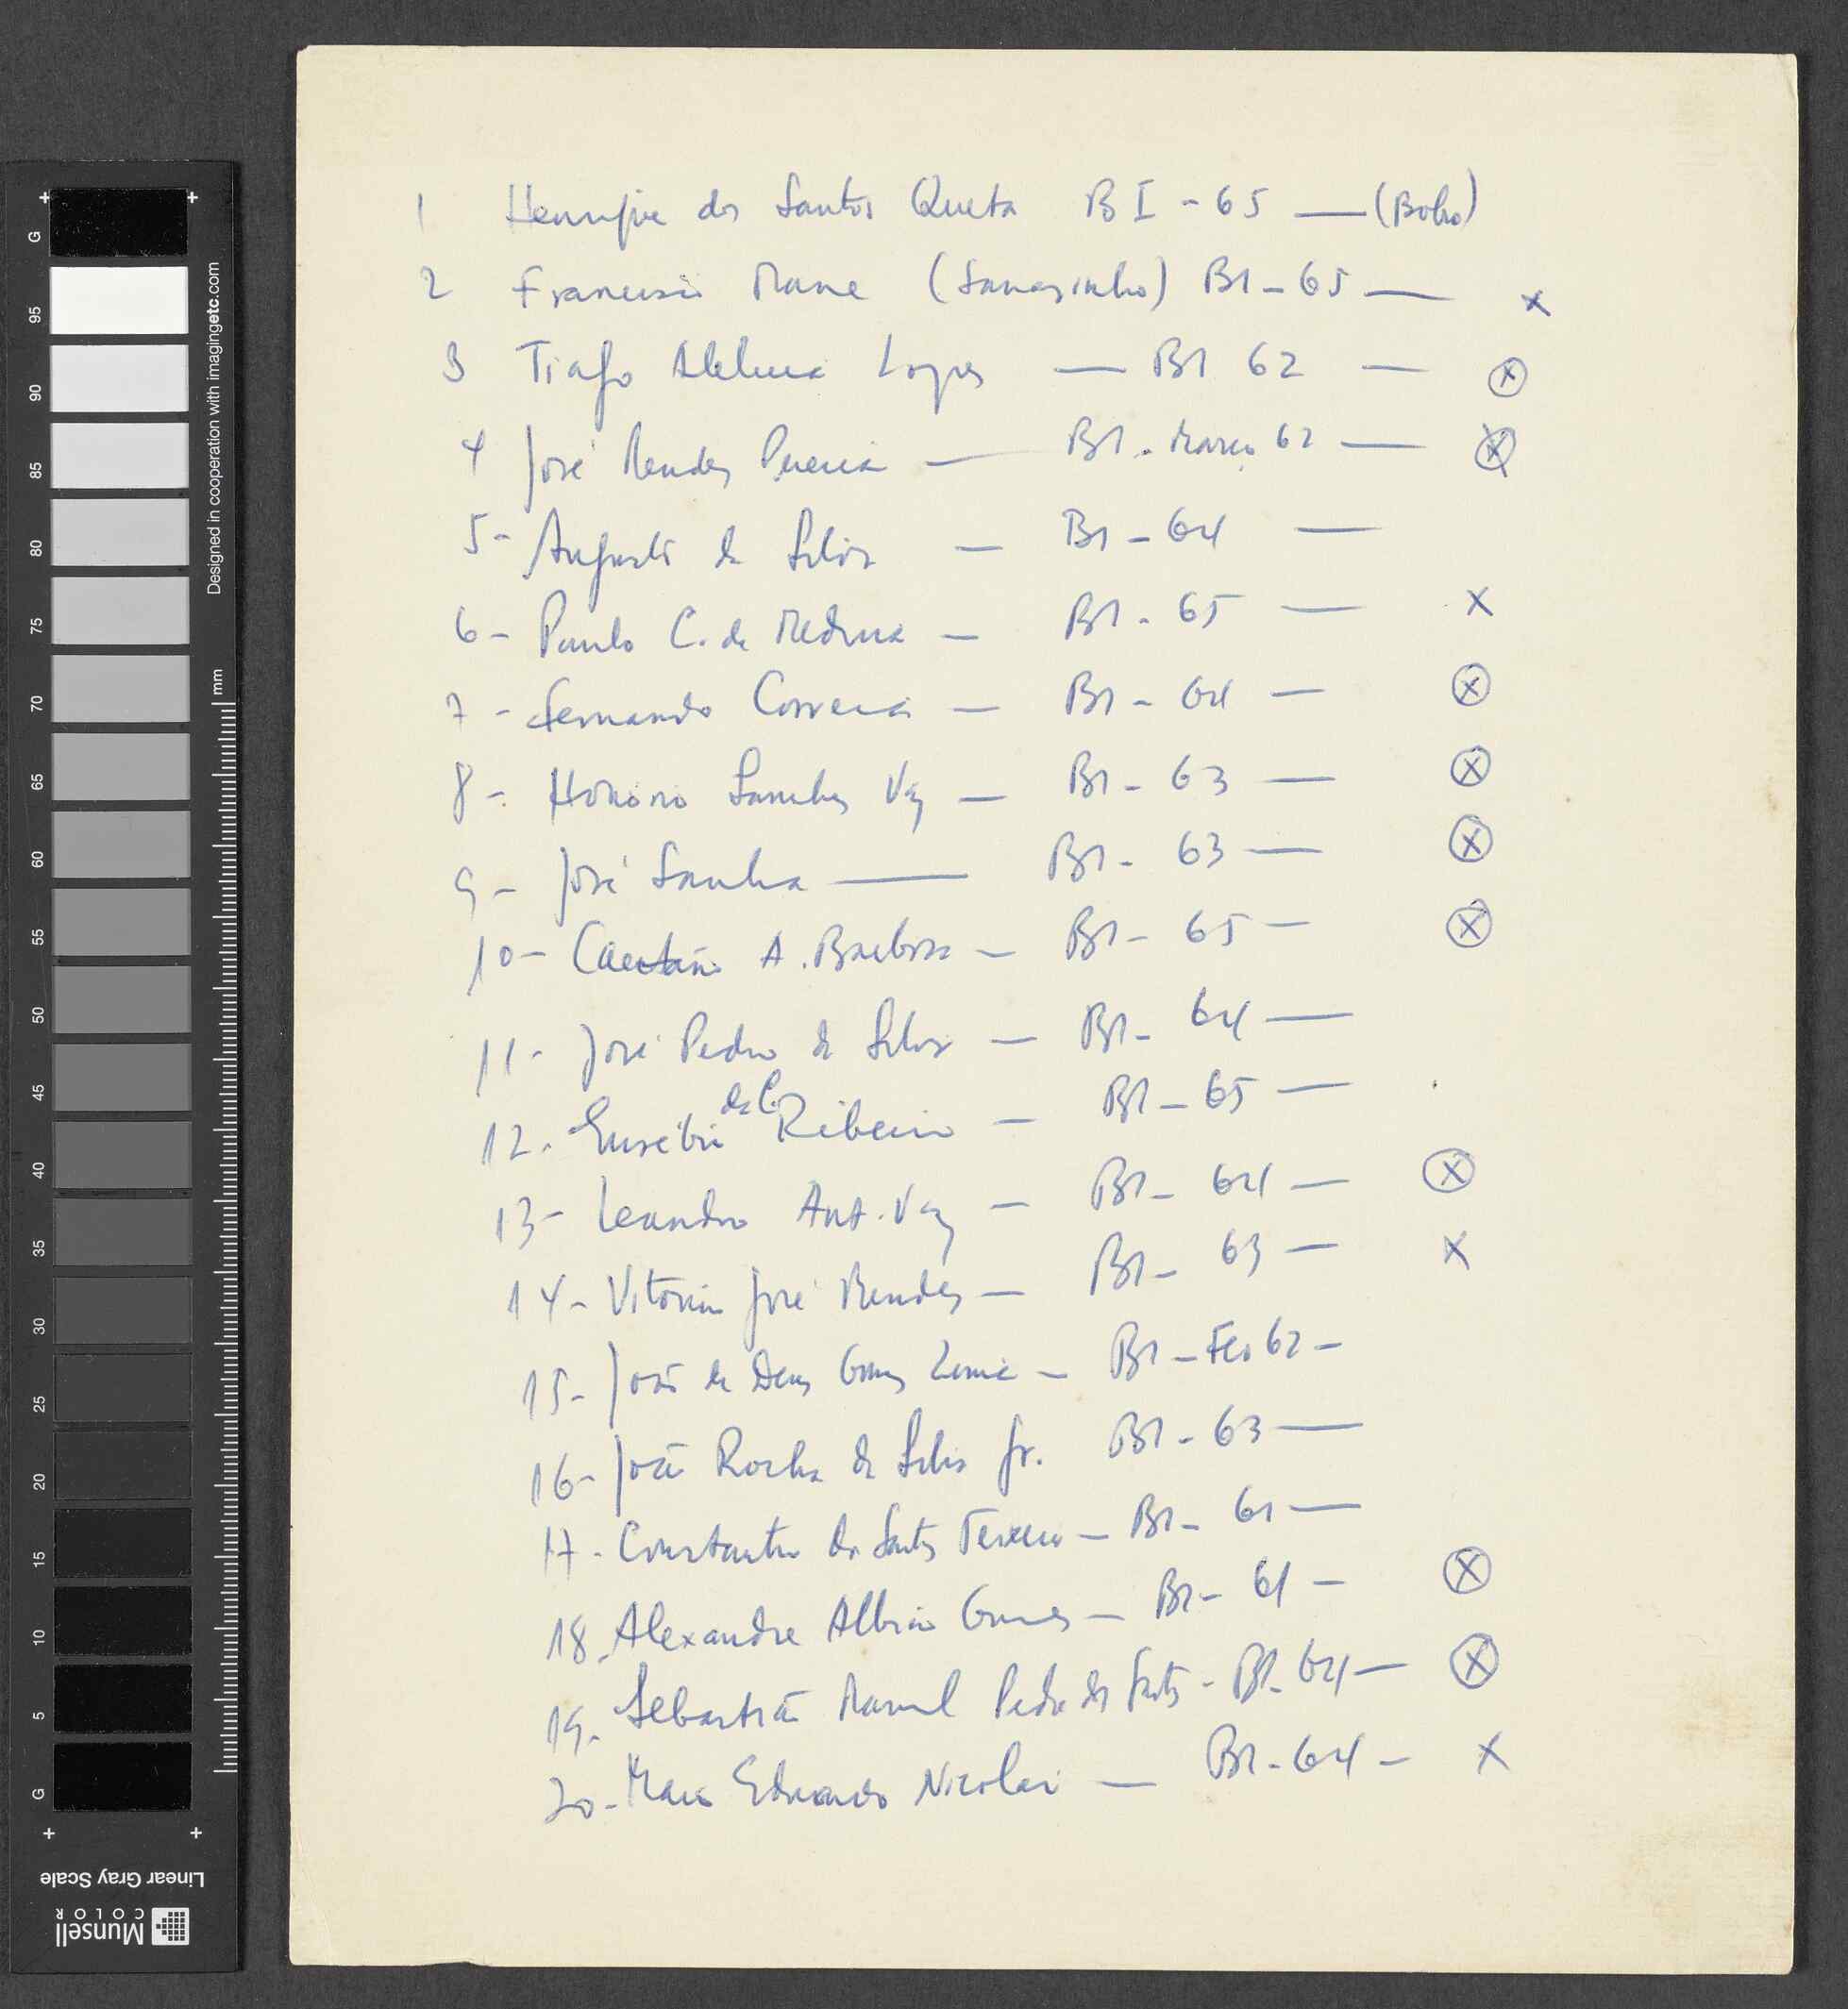 1 Henrique dos Santos Queta BI - 65 — (Bobo)
2 Francisco Mane (Sanasinho) B1 - 65 — x
3 Tiago Aleluia Lopes — B1 62 — ⓧ
4 José Mendes Pereira — B1 - Março 62 — ⓧ
5 - Augusto da Silva — B1 - 64 —
6 - Paulo C. da Medina — B1 - 65 — x
7 - Fernando Correia — B1 - 64 — ⓧ
8 - Honório Sanches Vaz — B1 - 63 — ⓧ
9 - José Sanha — B1 - 63 — ⓧ
10 - Caetano A. Barbosa — B1 - 65 — ⓧ
11 - José Pedro da Silva — B1 - 64 —
12 - Eusébio da C. Ribeiro — B1 - 65 —
13 - Leandro Ant. Vaz — B1 - 64 — ⓧ
14 - Vitorino José Mendes — B1 - 63 — x
15 - João de Deus Gomes — B1 - Fev 62 -
16 - João Rocha da Silva Jr. B1 - 63 —
17 - Constantino dos Santos Teixeira — B1 - 61 —
18. Alexandre Albino Gomes — B1 - 61 — ⓧ
19. Sebastião Manuel Pedro dos Santos - B1 - 64 — ⓧ
20 - Mario Eduardo Nicolai — B1 - 64 - x
G
95
90
85
80
75
70
65
60
55
50
45
40
35
30
25
20
15
10
5
G
Designed in cooperation with imagingetc.com
mm
Linear Gray Scale
Munsell
COLOR